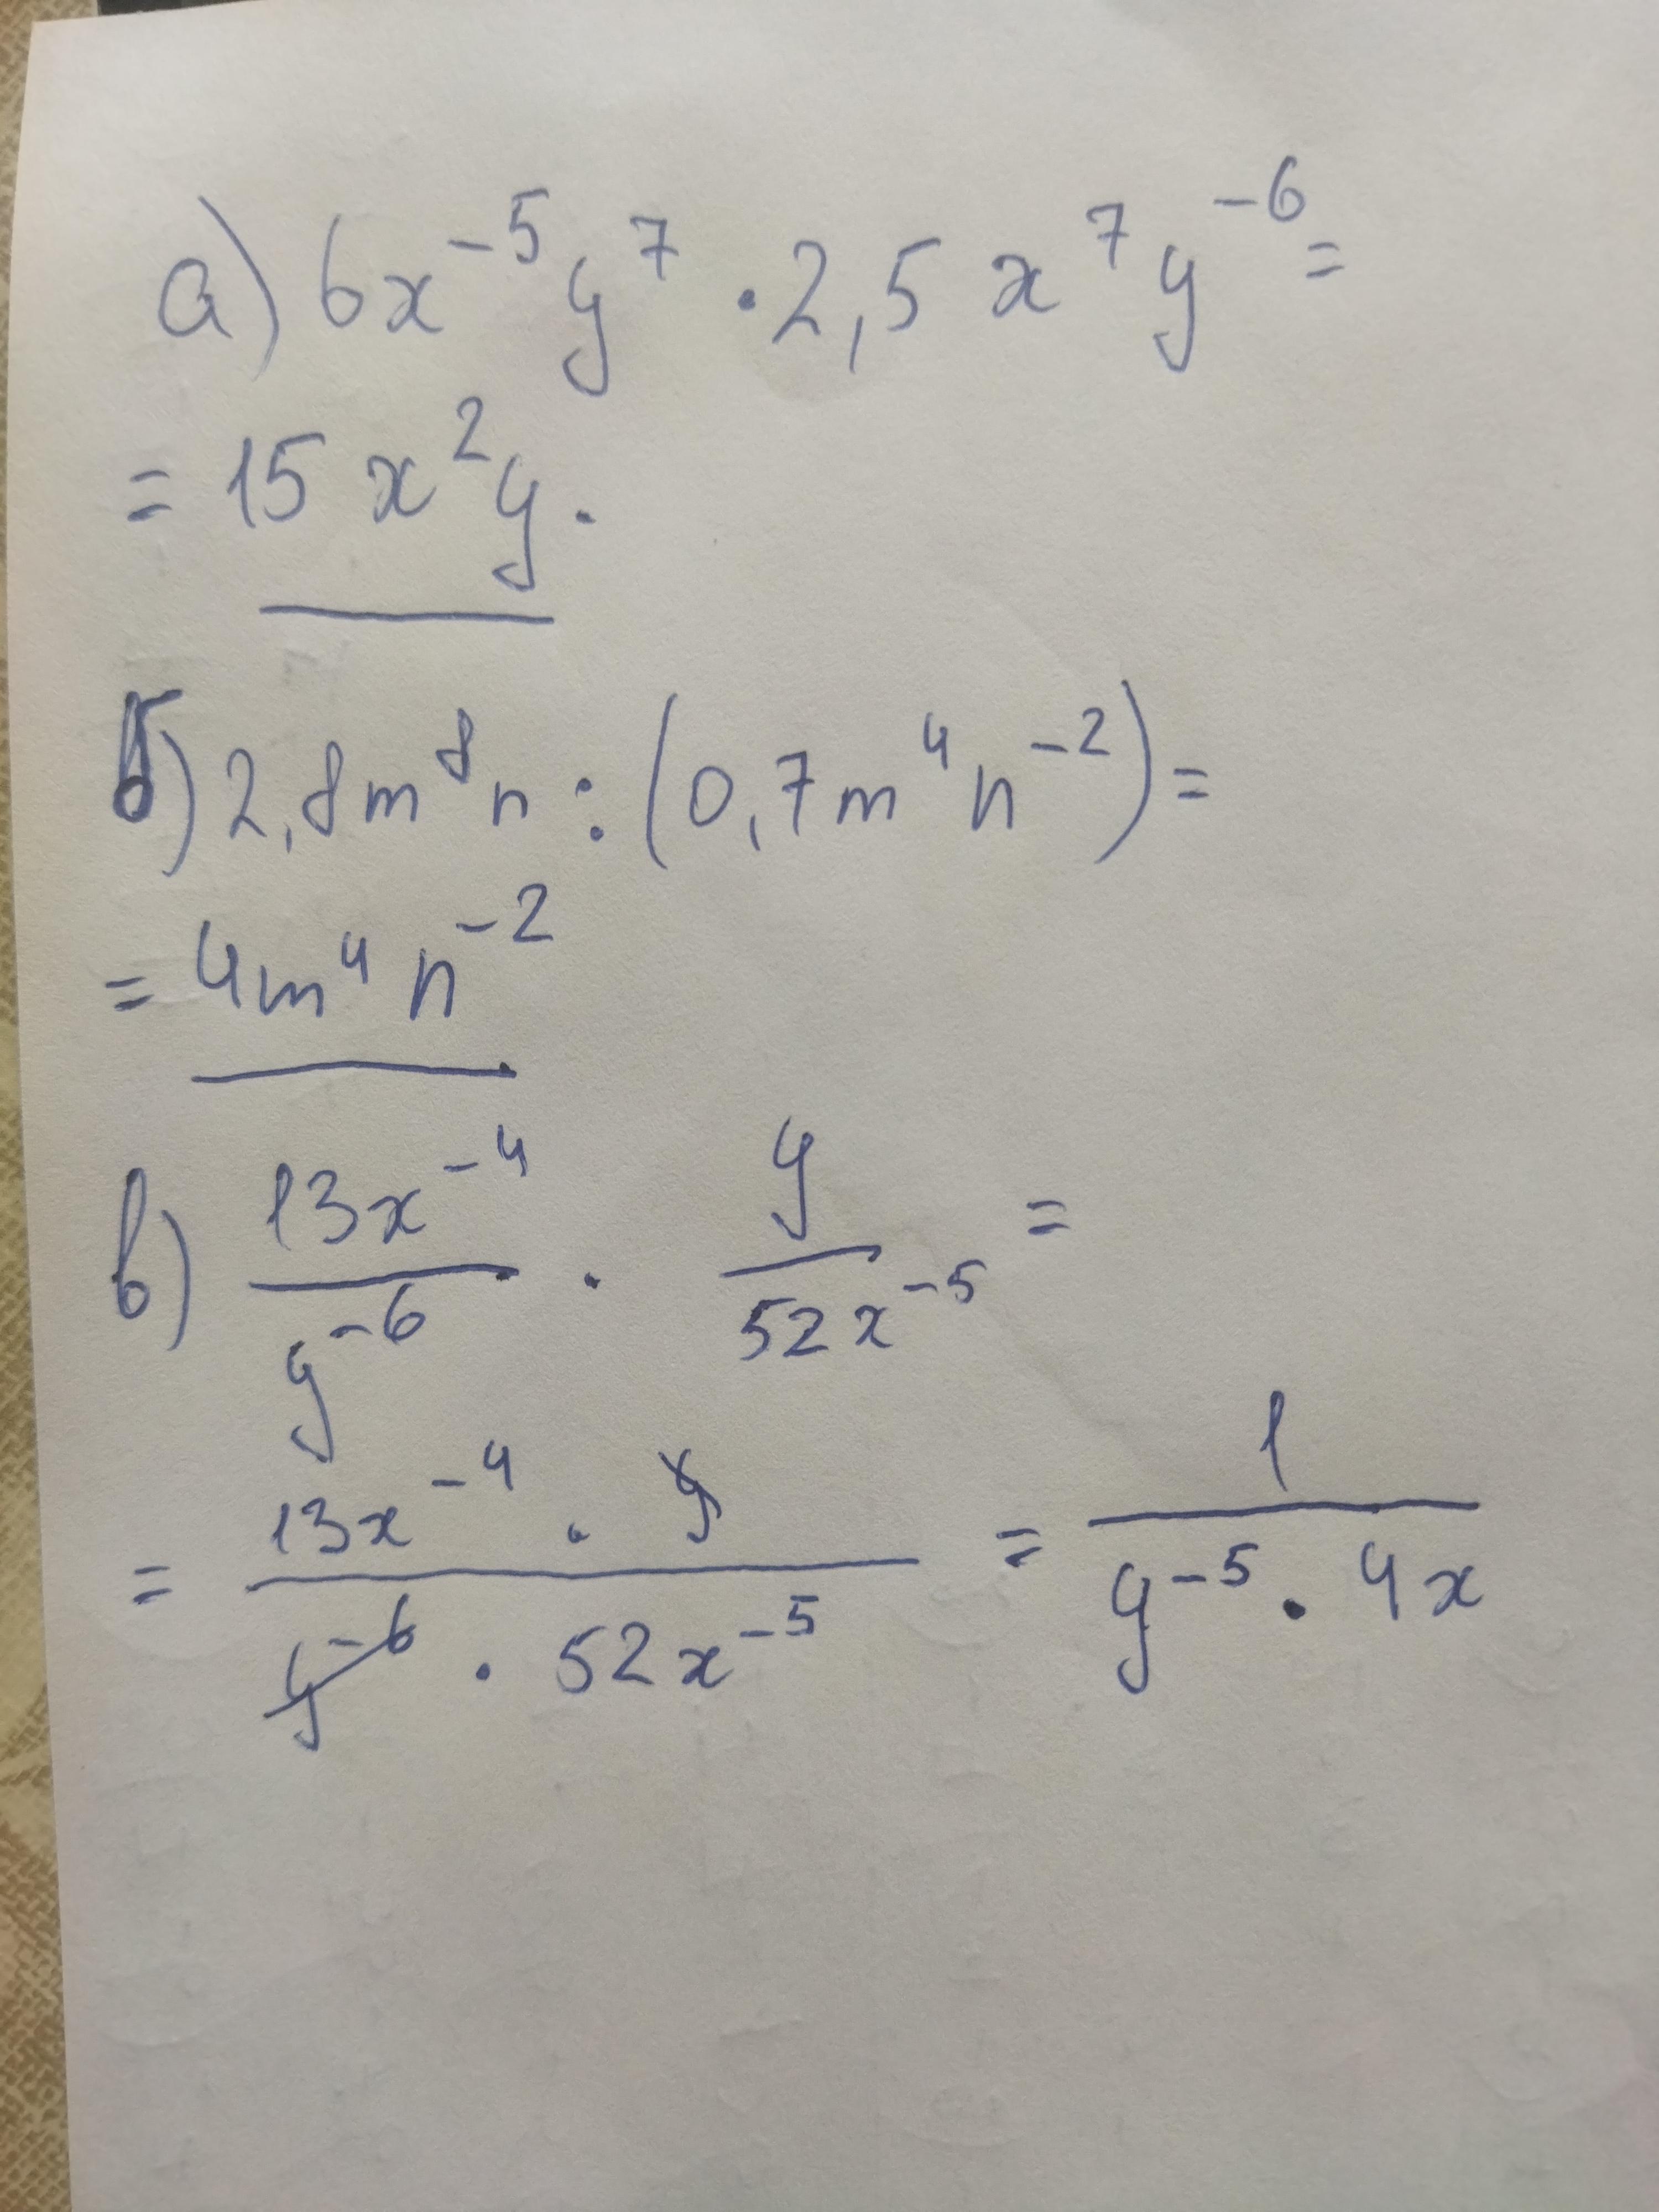 а) 6x⁻⁵y⁷ · 2,5 x⁷y⁻⁶ =
= 15 x²y.
б) 2,8m⁸n : (0,7m⁴n⁻²) =
= 4m⁴ n⁻²
в) 13x⁻⁴/y⁻⁶ · y/52x⁻⁵ =
= 13x⁻⁴ · y/y⁻⁶ · 52x⁻⁵ = 1/y⁻⁵ · 4x